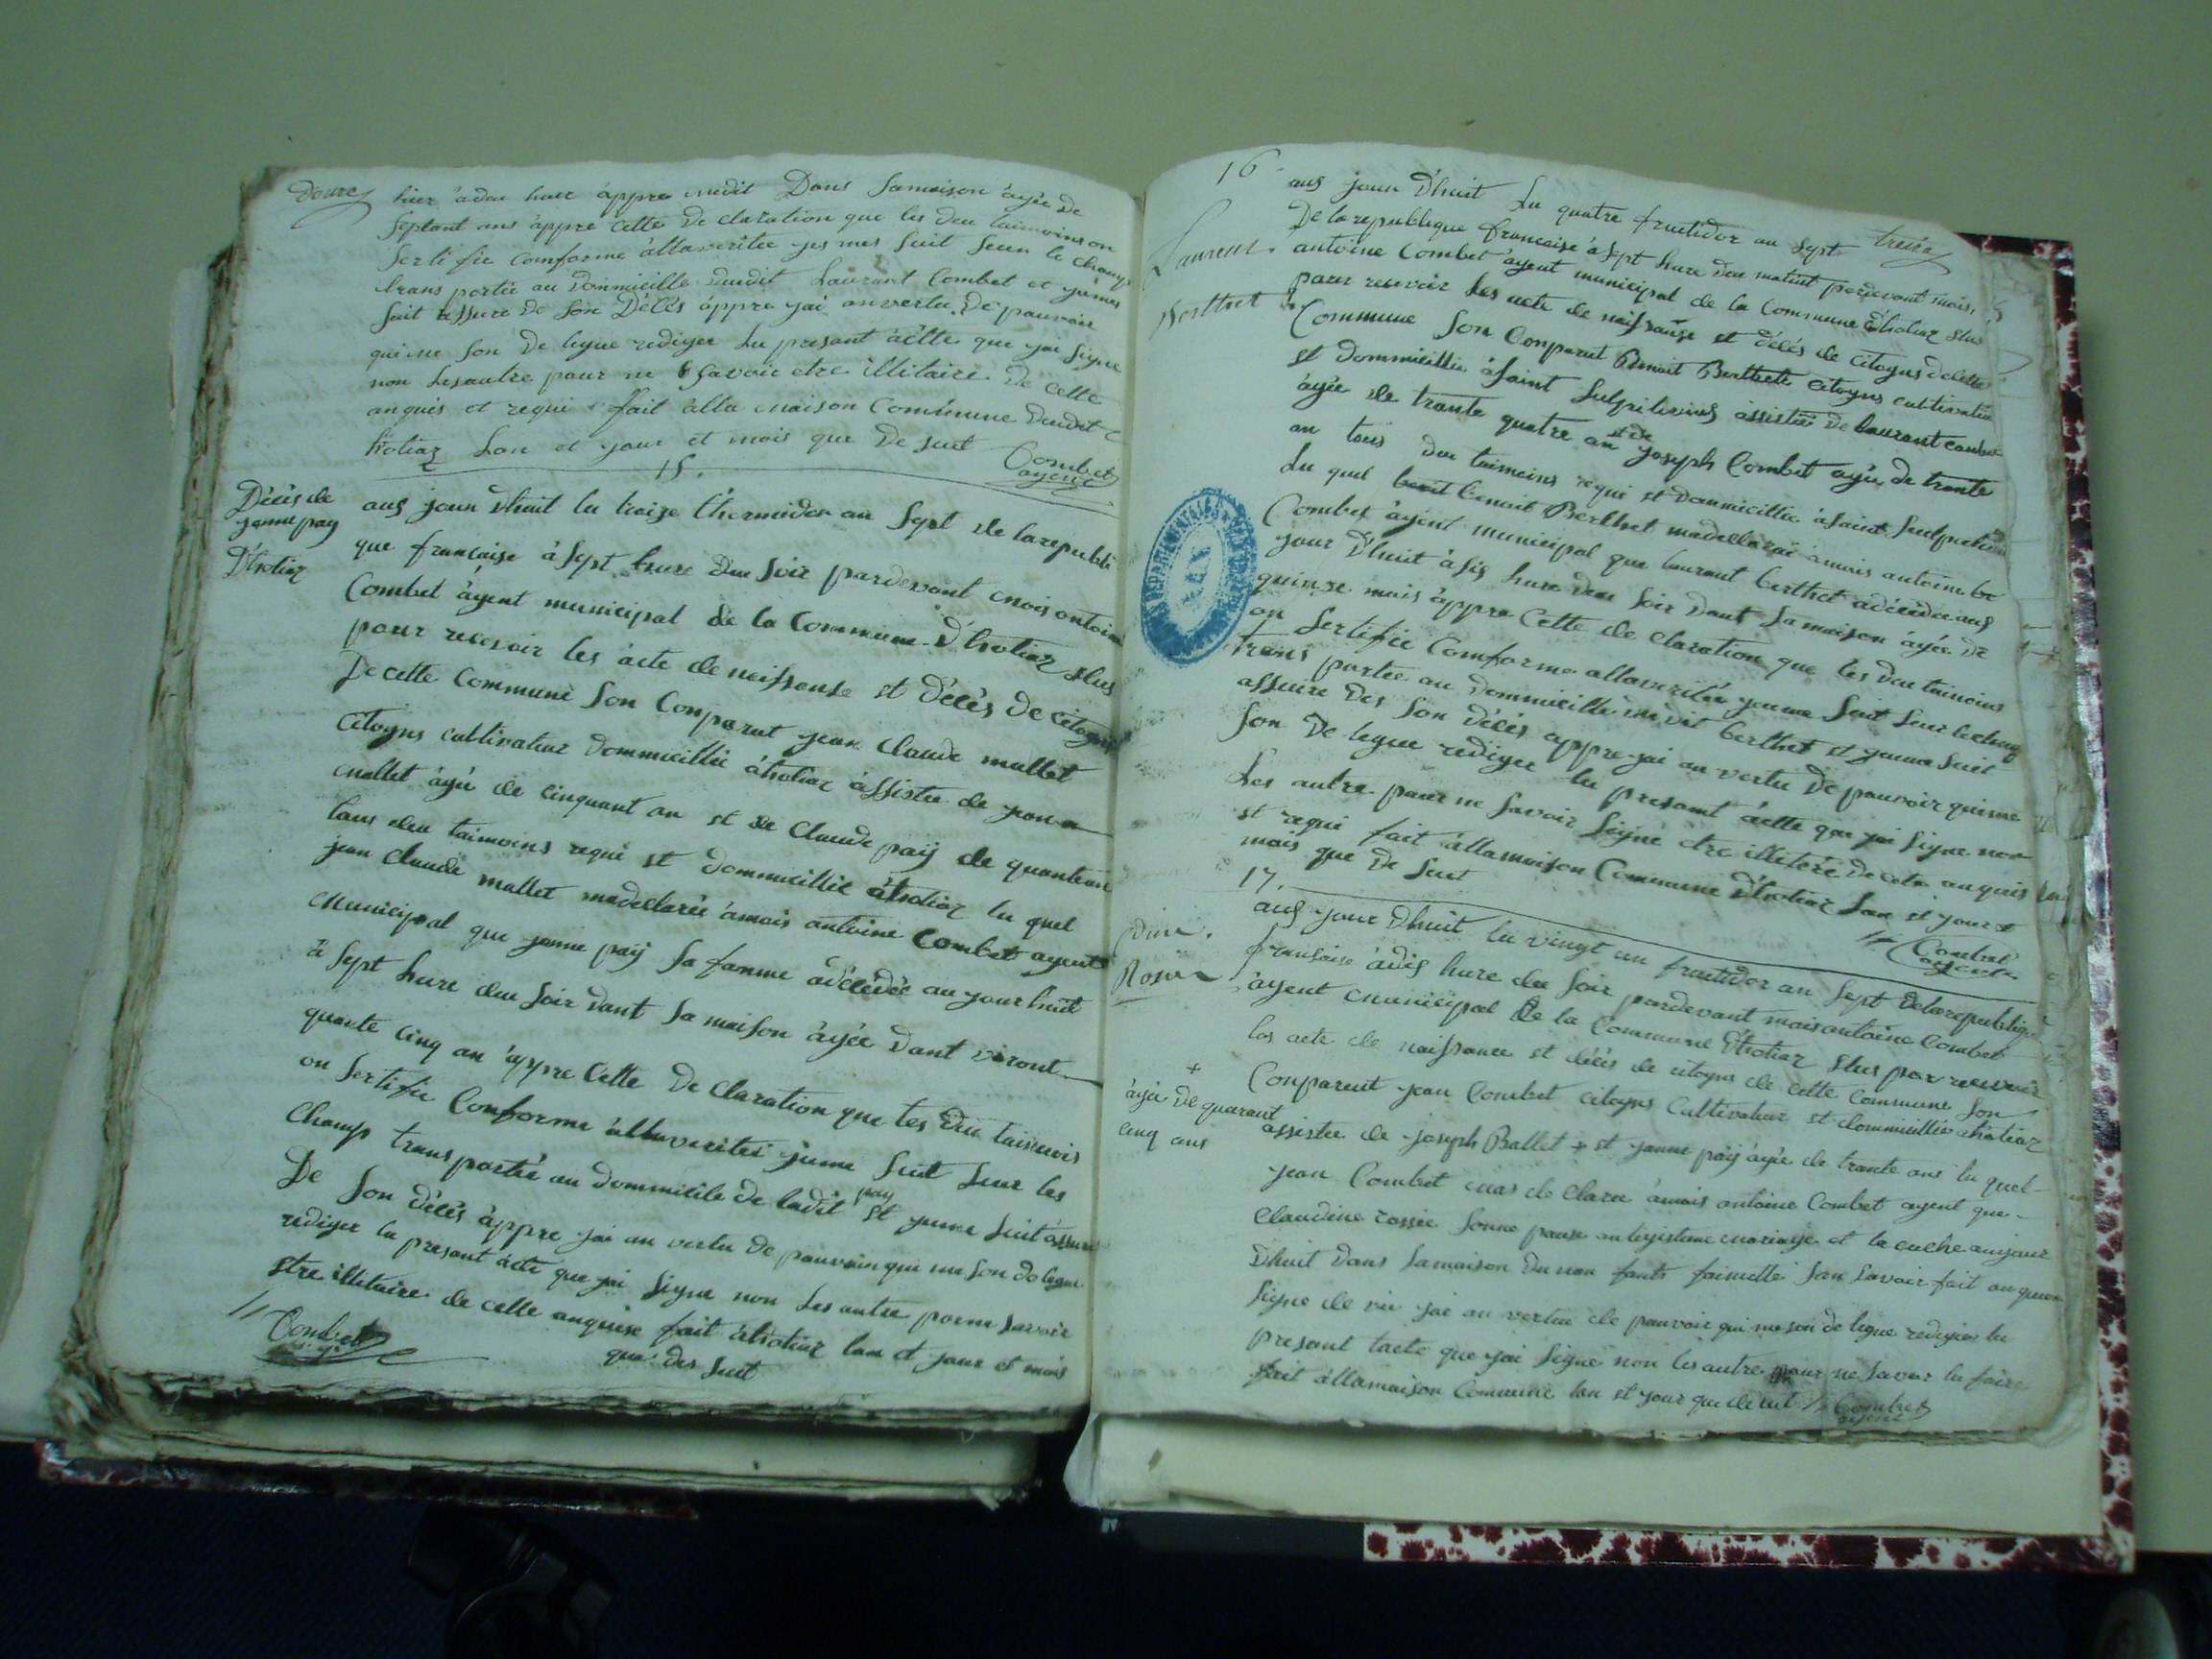 Douze
hier à deu hure àppre midit Dans Samaison àjée de
Septant ans àppre cette De claration que les deu taimoins on
Sertifie comforme àllaverítée je mes suit seur le champ
trans portée au Dommicille dudit Laurant Combet et jemes
suit assure de son Délés àppre jai anvertu De pouvoir
qui me son De legue rediger Lu presant àctte que jai signe
non Lesautre pour ne savoir etre illitaire De cette
anquis et requi fait àlla maison Commune dudit
hotiaz Lan et jour et mois que De suit
Combet
agent
15.
Décès de
jenne pay
D'hotiaz
auj jour Dhuit lu traize thermidor an Sept de larepubli
que francaise à sept hure du soir pardevant mois antoine
Combet àgent municipal de la Commune D'hotiaz elus
pour recevoir les àcte de neissense et Décès De citoyns
De cette Commune Son Conparut jean Claude mallet
citoyns cultivateur dommicillie àhotiaz àssistée de
mallet àjé de cinquant an et de Claude paÿ de
tous deu taimoins requi et dommicillie àhotiaz lu quel
jean Claude mallet madeclarée àmois antoine Combet agent
municipal que jenne paÿ Sa famme à décédée au jour huit
à sept hure deu soir dant sa maison àjée dant viront
quante cinq an àppre Cette De Claration que les deu taimois
on sertifie Conforme àllaverités jeme suit seur les
champ trans portée au dommicile de ladit pay et jeme suit àssure
De son délés àppre jai an vertu de pouvoir qui me son de legue
rediger lu presant àcte que jai signe non les autre pour ne savoir
etre illitaire de cette anquise fait àhotiaz lan et jour et mois
que des suit
Combet
16
treize
Laurent
Berthet
auj jour D'huit Lu quatre fructidor an Sept
De la republique francaise à sept hure deu matint pardevant mois
antoine Combet àgent municipal de la Commune D'hotiaz elus
pour recevoir les acte de naissanse et délés de citoyns de cette
Commune Son Conparut Benoit Berthet citoyns cultivateur
et dommicillie à saint Sulpi assistée De laurant combet
àjée de trante quatre an et de joseph Combet ajée de trante
an tous deu taimoins requi et dommicillie à saint
Lu quel benoit Berthet madeclarai àmois antoine
Combet àgent municipal que laurant berthet adécédée auj
jour D'huit à sis hure deu soir Dant Sa maison àjée De
quinse mois àppre Cette de claration que les deu taimoins
on sertifie Comforme allaverítée jeme suit seur le champ
trans portée au dommicille du dit berthet et jeme suit
assure Des son délés àppre jai an vertu De pouvoir quime
son De legue rediger lu presant àctte que jai signe non
Les autre pour ne savoir signe etre illitére De cete anquis
et requi fait àllamaison Commune D'hotiaz Lan et jour et
mois que De suit
Combet
agent
17.
dine
Rosier
auj jour Dhuit lu vingt un fructidor an Sept delarepublique
fransaise àdis hure du soir pardevant mois antoine Combet
àgent municipal de la Commune D'hotiaz elus por recevoir
las acte de naissance et décés de citoyns de cette Commune Son
Conparut jean Combet citoyns Cultivateur et dommicillie ahotiaz
assistée de joseph Ballet + et jenne paÿ àjée de trante ans lu quel
+
àjée De quarant
cinq ans
jean Combet mas de claree àmois antoine Combet agent que
Claudine rossie sonne pause an legistime mariage et la cuche aujour
Dhuit dans Samaison du nan fants faimelle san savoir fait auqeun
signe de vie jai an vertue de pouvoir qui me son de legue redigier lu
presant tacte que jai signe non les autre pour ne savoir lu faire
fait àllamaison Commune lan et jour que de sut Combet
agent